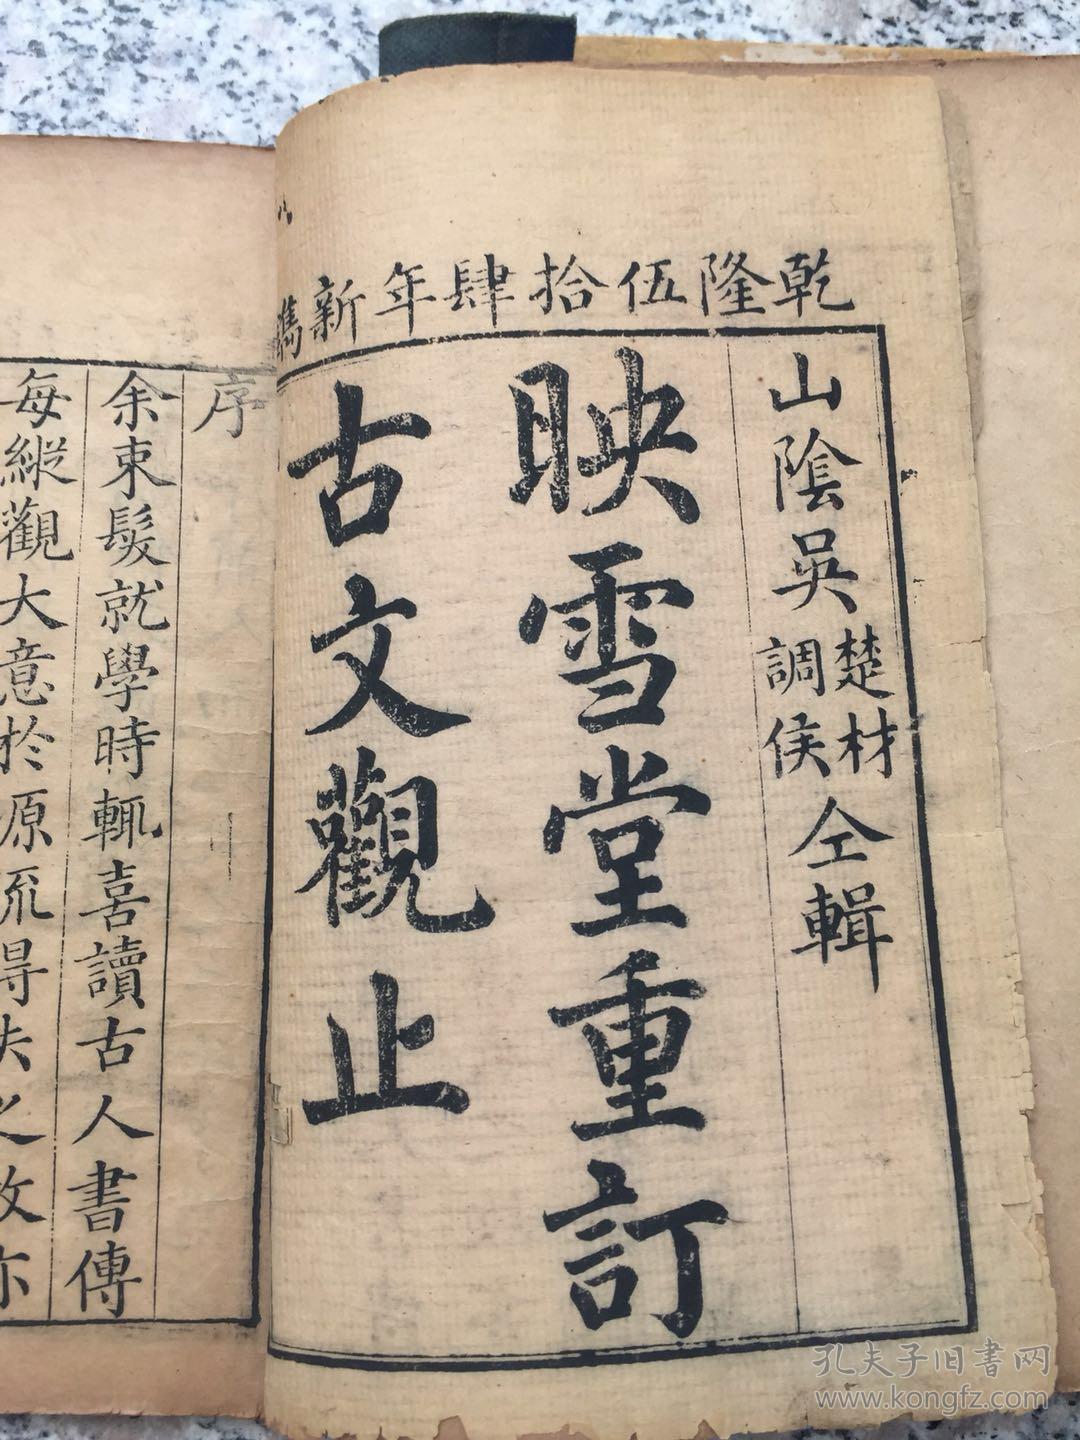 乾隆伍拾肆年新鐫
山陰吳楚材調侯仝輯
映雪堂重訂
古文觀止
序
余束髮就學時輒喜讀古人書傳
每縱觀大意於原流得失之故亦
孔夫子旧書网
www.kongfz.com